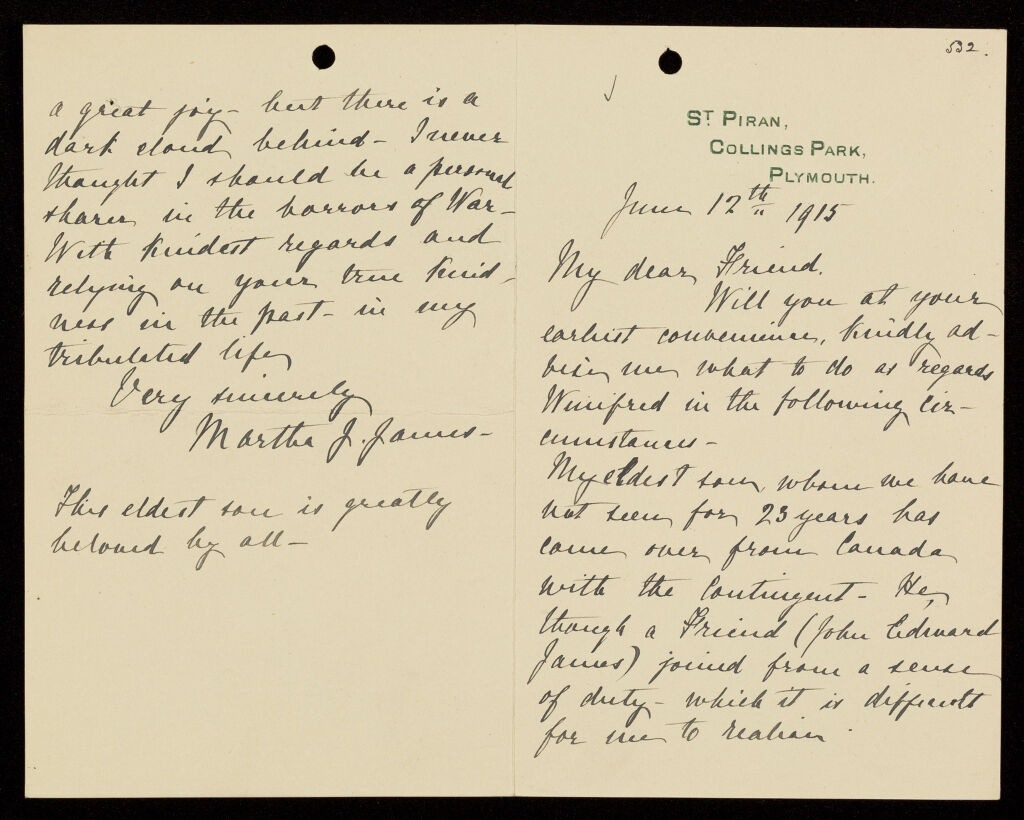 532.
ST. PIRAN,
COLLINGS PARK,
PLYMOUTH.
June 12th 1915
My dear Friend.
Will you at your
earliest convenience, kindly ad-
vise me what to do as regards
Winifred in the following cir-
cumstances -
My eldest son, whom we have
not seen for 23 years has
come over from Canada
with the Contingent - He,
though a Friend (John Edward
James) joined from a sense
of duty - which it is difficult
for me to realise.
a great joy - but there is a
dark cloud behind - I never
thought I should be a personal
sharer in the horrors of War -
With kindest regards and
relying on your true kind-
ness in the past - in my
tribulated life
Very sincerely
Martha J. James -
This eldest son is greatly
beloved by all -